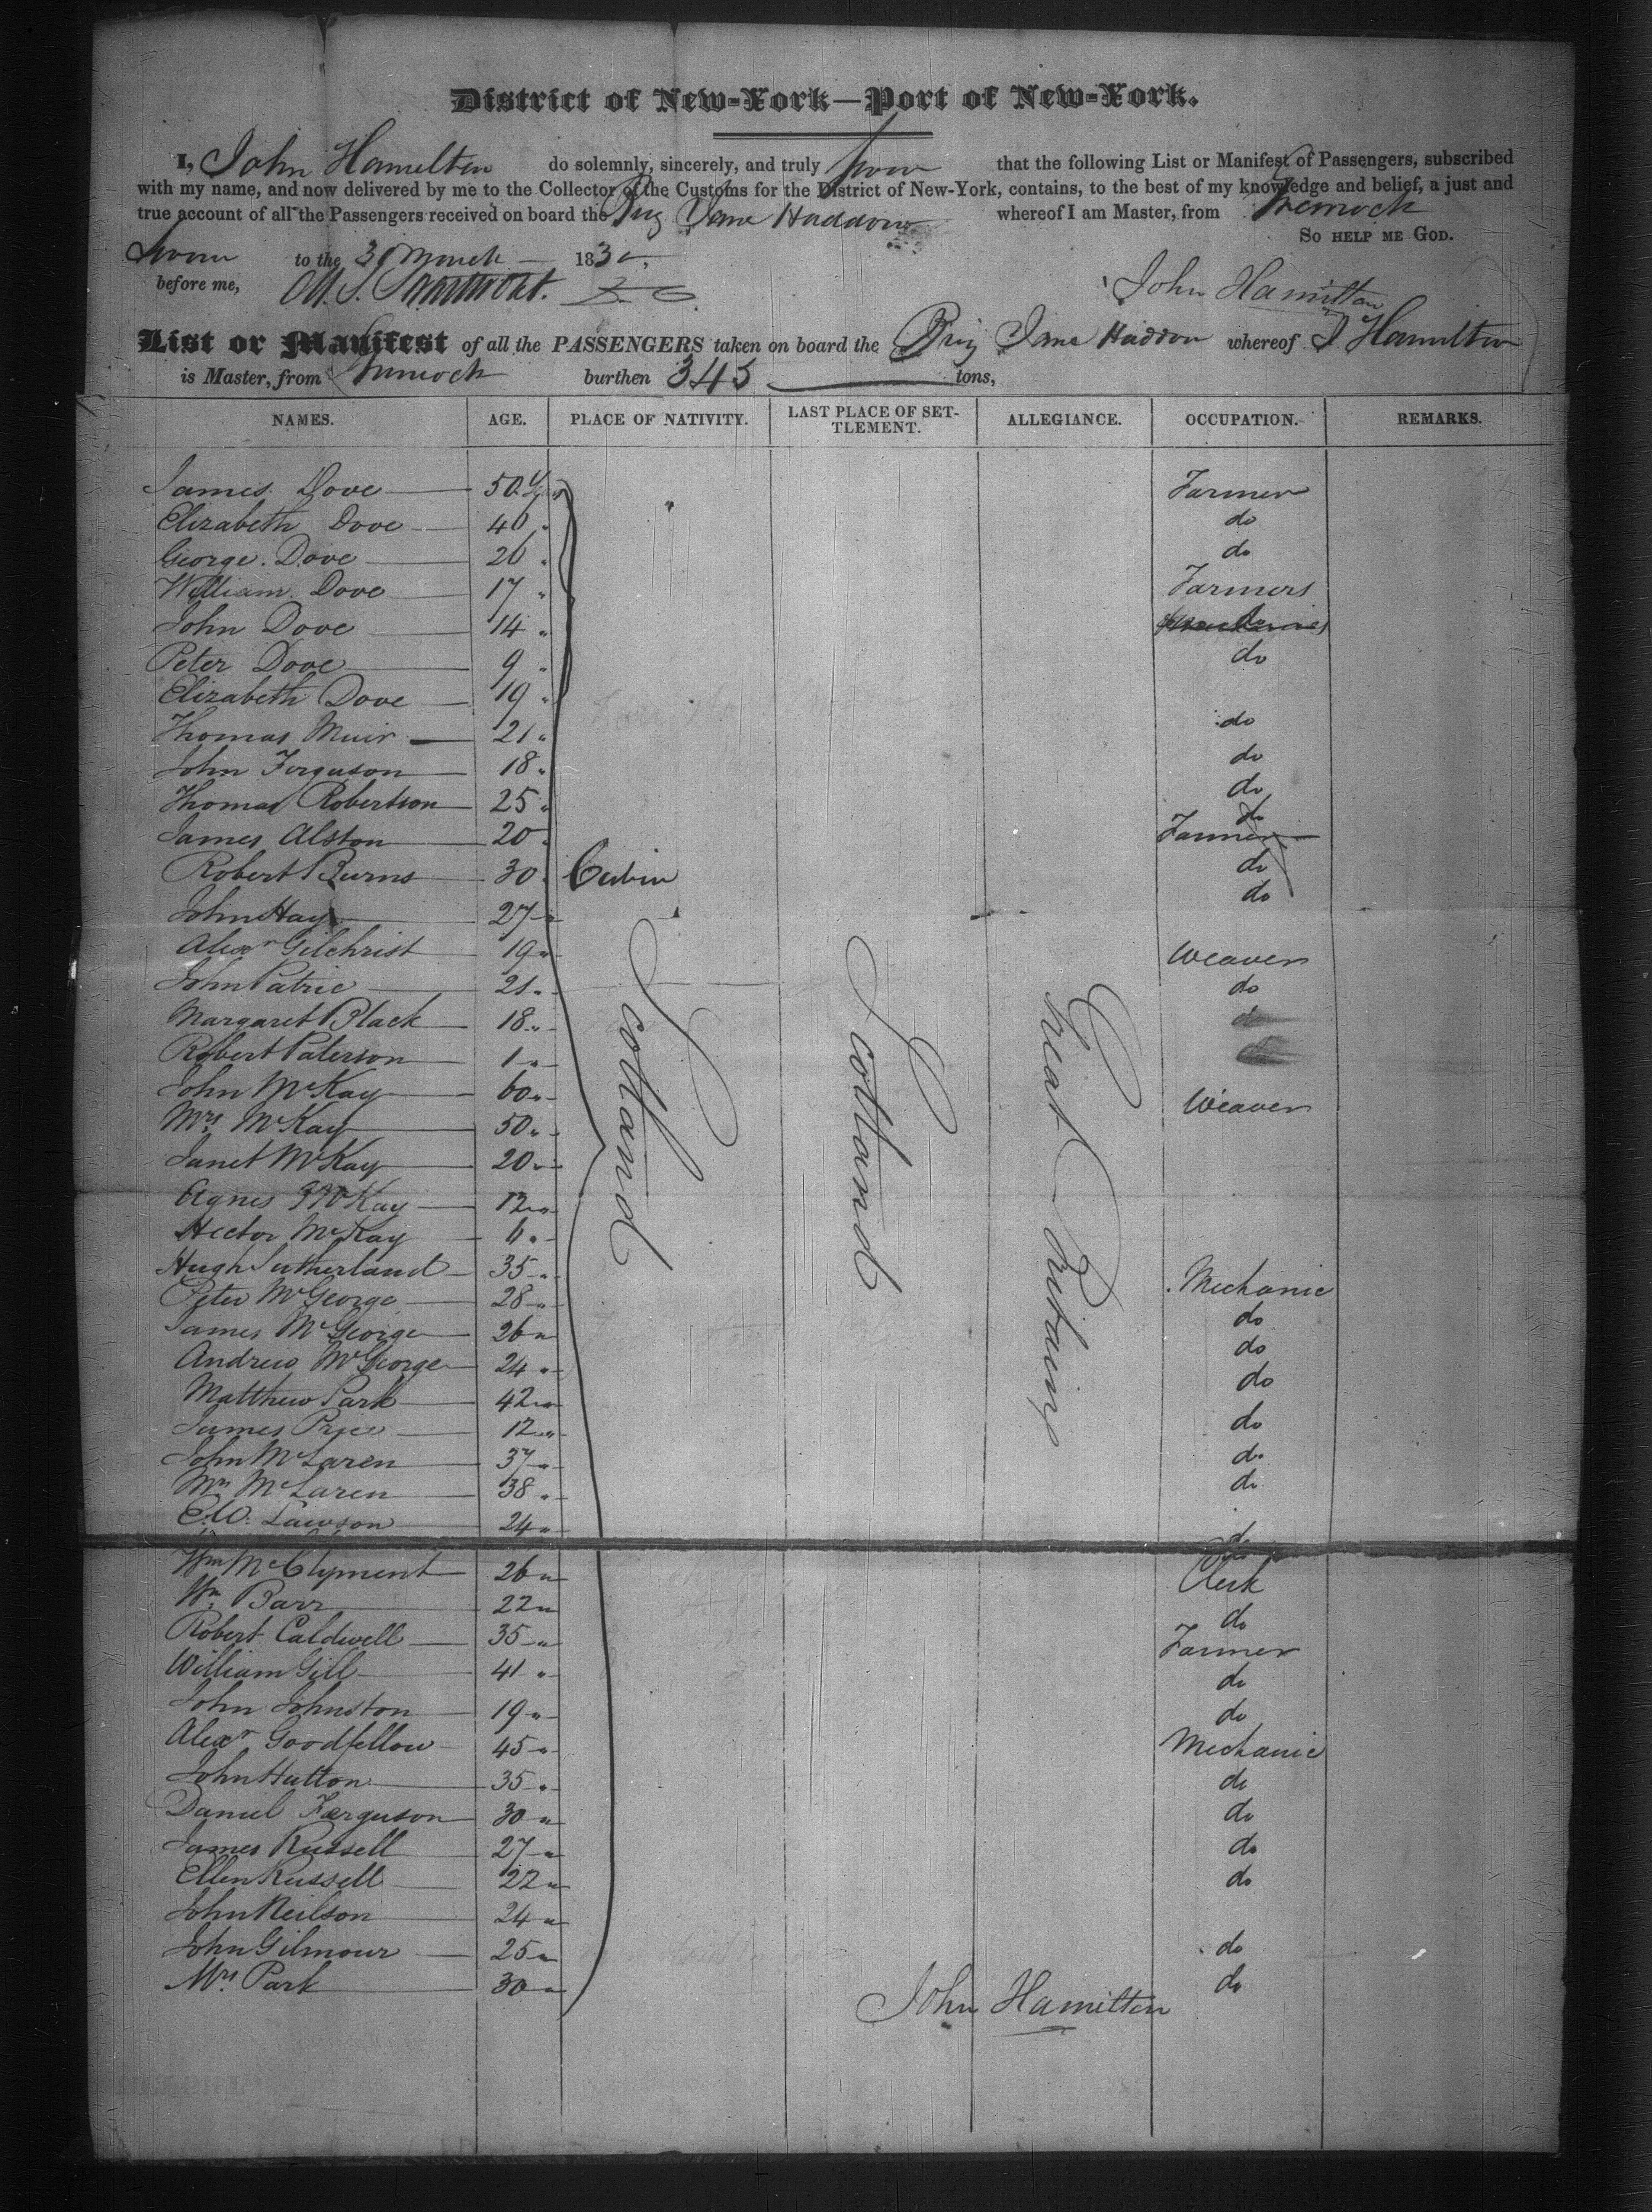 District of New-York—Port of New-York.
I, John Hamilton do solemnly, sincerely, and truly swear that the following List or Manifest of Passengers, subscribed
with my name, and now delivered by me to the Collector of the Customs for the District of New-York, contains, to the best of my knowledge and belief, a just and
true account of all the Passengers received on board the Brig Jane Haddow whereof I am Master, from Greenock
SO HELP ME GOD.
Sworn to the 31 March 183
before me,
John Hamilton
List or Manifest of all the PASSENGERS taken on board the Brig Jane Haddow whereof J Hamilton
is Master, from Greenock burthen 345 tons,
NAMES. AGE. PLACE OF NATIVITY. LAST PLACE OF SET-TLEMENT. ALLEGIANCE. OCCUPATION. REMARKS.
James Dove 50 Farmer
Elizabeth Dove 40 " do
George Dove 26 " do
William Dove 17 " Farmers
John Dove 14 " do
Peter Dove 9 " do
Elizabeth Dove 19 "
Thomas Muir 21 " do
John Ferguson 18 " do
Thomas Robertson 25 " do
James Alston 20 " do Farmer
Robert Burns 30 " Cabin do
John Hay 27 " do
Alexr Gilchrist 19 " Weaver
John Patric 21 " do
Margaret Black 18 "
Robert Paterson 1 "
John McKay 60 " Weaver
Mrs McKay 50 "
Janet McKay 20 "
Agnes McKay 12 "
Hector McKay 6 "
Scotland Scotland Great Britain
Hugh Sutherland 35 " Mechanic
Peter McGeorge 28 " do
James McGeorge 26 " do
Andrew McGeorge 24 " do
Matthew Park 42 " do
James Price 12 " do
John McLaren 37 " do
Mrs McLaren 38 "
C.W. Lawson 24 " do
Wm McClyment 26 " Clerk
Wm Barr 22 " do
Robert Caldwell 35 " Farmer
William Gill 41 " do
John Johnston 19 " do
Alexr Goodfellow 45 " Mechanic
John Hutton 35 " do
Daniel Ferguson 30 " do
James Russell 27 " do
Ellen Russell 22 " do
John Neilson 24 "
John Gilmour 25 " do
Mrs Park 30 " do
John Hamilton